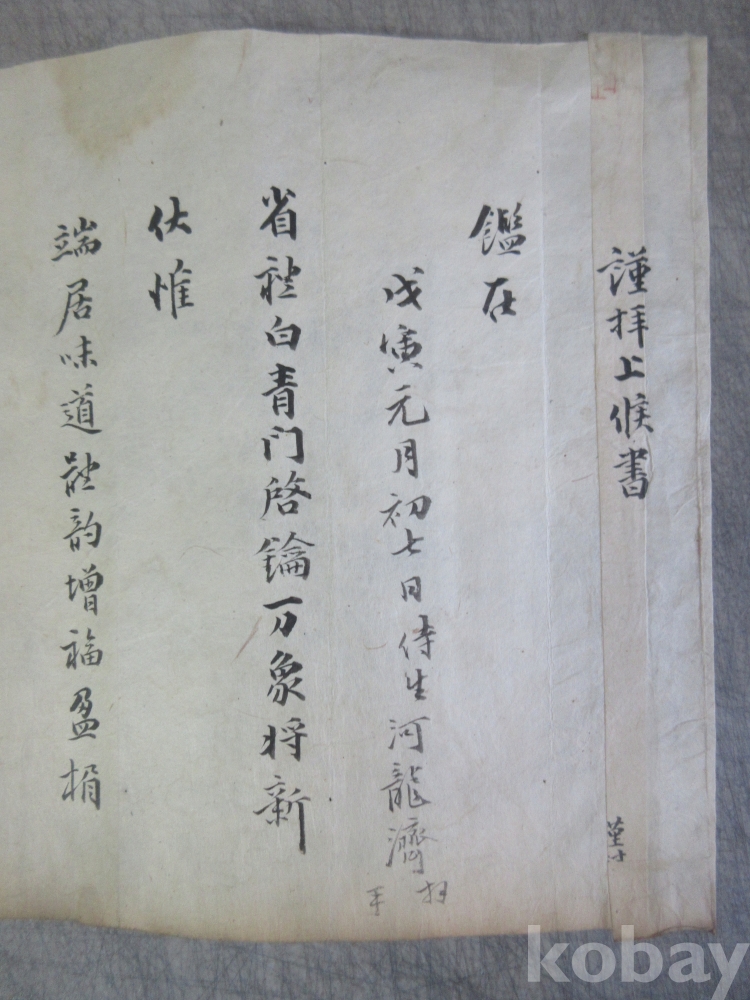 謹拜上候書
謹封
鑑在
戊寅元月初七日侍生河龍濟拜手
省礼白青门啓鑰万象将新
伏惟
端居味道
韵增福
kobay